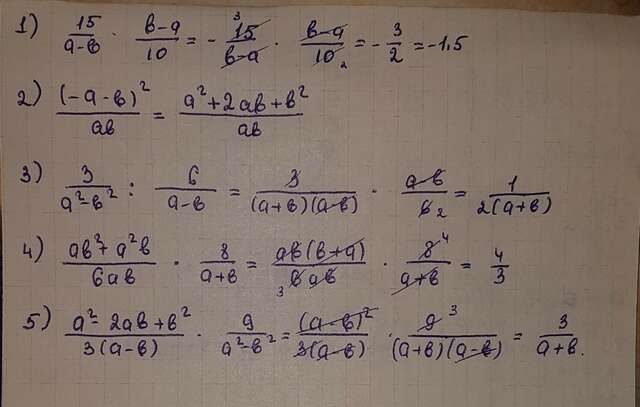 1) 15/(a-b) · (b-a)/10 = - 15 3/(b-a) · (b-a)/10 2 = - 3/2 = -1,5
2) (-a-b)²/ab = (a²+2ab+b²)/ab
3) 3/(a²-b²) : 6/(a-b) = 3/((a+b)(a-b)) · (a-b)/6 2 = 1/(2(a+b))
4) (ab²+a²b)/6ab · 8/(a+b) = ab(b+a)/3 6ab · 8 4/(a+b) = 4/3
5) (a²-2ab+b²)/(3(a-b)) · 9/(a²-b²) = (a-b)²/(3(a-b)) · 9 3/((a+b)(a-b)) = 3/(a+b).